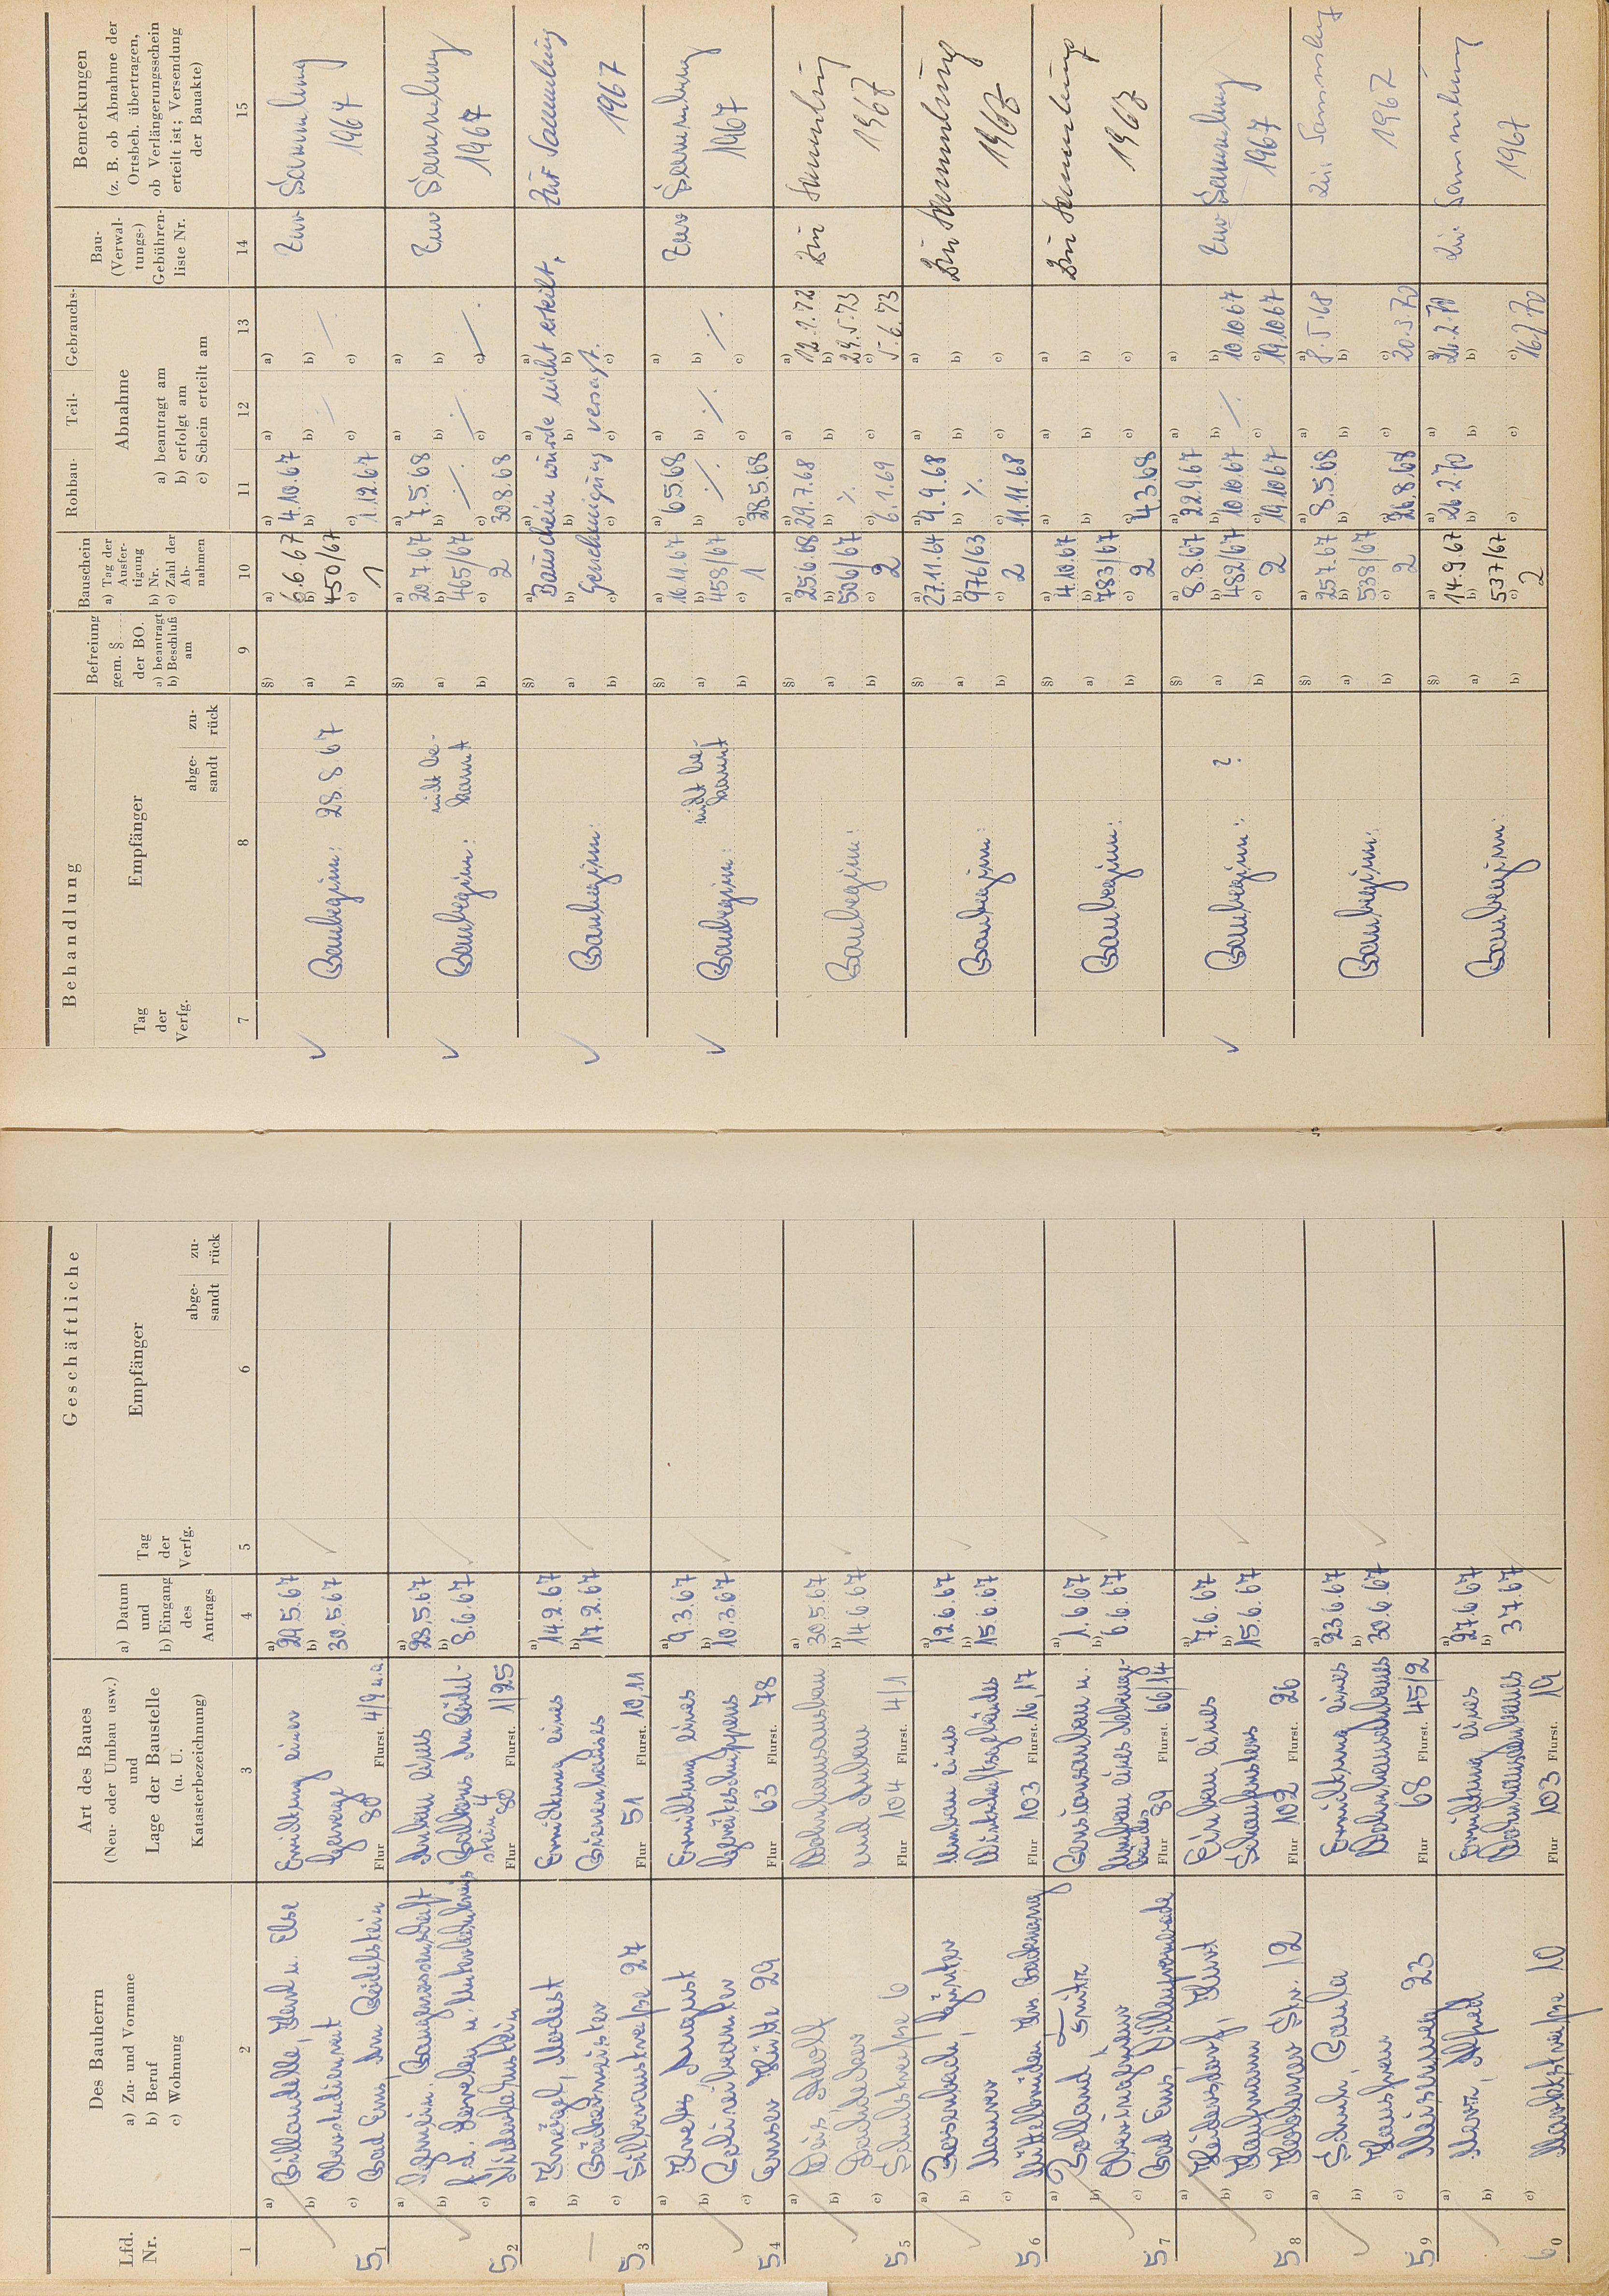 Geschäftliche
Lfd. Nr.
Des Bauherrn
a) Zu- und Vorname
b) Beruf
c) Wohnung
Art des Baues
(Neu- oder Umbau usw.)
und
Lage der Baustelle
(u. U.
Katasterbezeichnung)
a) Datum
und
b) Eingang
des
Antrags
Tag
der
Verfg.
Empfänger
abge-
sandt
zu-
rück
1 2 3 4 5 6
51
a) Billaudelle, Karl u. Else
b) Oberstudienrat
c) Bad Ems, Am Bädelstein
Errichtung einer
Garage
Flur 80 Flurst. 4/9 u.a
a) 29.5.67
b) 30.5.67
52
a) Gemein. Baugenossenschaft
c) Niederlahnstein
Anbau eines
Balkons
Flur 80 Flurst. 1/25
a) 28.5.67
b) 8.6.67
53
a) Modest
c) Silberaustraße 27
Errichtung eines
Bienenhauses
Flur 51 Flurst. 10,11
a) 14.2.67
b) 17.2.67
54
a) August
b) Polizeibeamter
c) Emser Hütte 29
Errichtung eines
Geräteschuppens
Flur 63 Flurst. 78
a) 9.3.67
b) 10.3.67
55
a) Adolf
b) Dachdecker
c) Schulstraße 6
Wohnhausausbau
und Anbau
Flur 104 Flurst. 4/1
a) 30.5.67
b) 14.6.67
56
a) Günter
b) Maurer
Umbau eines
Wirtschaftsgebäudes
Flur 103 Flurst. 16,17
a) 12.6.67
b) 15.6.67
57
a) Fritz
b) Oberingenieur
c) Bad Ems, Villenpromenade
Pensionsausbau u.
Umbau eines Nebenge-
bäudes
Flur 89 Flurst. 66/14
a) 1.6.67
b) 6.6.67
58
a) Kurt
b) Kaufmann
c) Koblenzer Str. 12
Einbau eines
Schaufensters
Flur 102 Flurst. 26
a) 7.6.67
b) 15.6.67
59
a) Schuh, Paula
b) Hausfrau
23
Errichtung eines
Wohnhausanbaues
Flur 68 Flurst. 45/2
a) 23.6.67
b) 30.6.67
60
a) Alfred
b)
c) Marktstraße 10
Errichtung eines
Wohnhausanbaues
Flur 103 Flurst. 19
a) 27.6.67
b) 3.7.67
Behandlung
Tag
der
Verfg.
Empfänger
abge-
sandt
zu-
rück
Befreiung
gem. §
der BO.
a) beantragt
b) Beschluß
am
Bauschein
a) Tag der
Ausfer-
tigung
b) Nr.
c) Zahl der
Ab-
nahmen
Rohbau- Teil- Gebrauchs-
Abnahme
a) beantragt am
b) erfolgt am
c) Schein erteilt am
Bau-
(Verwal-
tungs-)
Gebühren-
liste Nr.
Bemerkungen
(z. B. ob Abnahme der
Ortsbeh. übertragen,
ob Verlängerungsschein
erteilt ist; Versendung
der Bauakte)
7 8 9 10 11 12 13 14 15
Baubeginn: 28.8.67
a) 6.6.67
b) 450/67
c) 1
a) 4.10.67
c) 1.12.67
Zur Sammlung
1967
Baubeginn: nicht be-
kannt
a) 20.7.67
b) 465/67
c) 2
a) 7.5.68
b) ·/.
c) 30.8.68
Zur Sammlung
1967
Baubeginn:
Bauschein wurde nicht erteilt,
Genehmigung versagt.
Zur Sammlung
1967
Baubeginn: nicht be-
kannt
a) 16.11.67
b) 458/67
c) 1
a) 6.5.68
b) ·/.
c) 28.5.68
Zur Sammlung
1967
Baubeginn:
a) 25.6.68
b) 506/67
c) 2
a) 29.7.68
b) ·/.
c) 6.1.69
a) 12.1.72
b) 29.5.73
c) 5.6.73
Zur Sammlung
1967
Baubeginn:
a) 27.11.64
b) 976/63
c) 2
a) 9.9.68
b) ·/.
c) 11.11.68
Zur Sammlung
1967
Baubeginn:
a) 4.10.67
b) 783/67
c) 2
c) 4.3.68
Zur Sammlung
1967
Baubeginn: ?
a) 8.8.67
b) 482/67
c) 2
a) 22.9.67
b) 10.10.67
c) 19.10.67
·/.
b) 10.10.67
c) 19.10.67
Zur Sammlung
1967
Baubeginn:
a) 25.7.67
b) 538/67
c) 2
a) 8.5.68
c) 26.8.68
a) 8.5.68
c) 20.3.70
Zur Sammlung
1967
Baubeginn:
a) 14.9.67
b) 537/67
c) 2
a) 26.2.70
a) 26.2.70
Zur Sammlung
1967